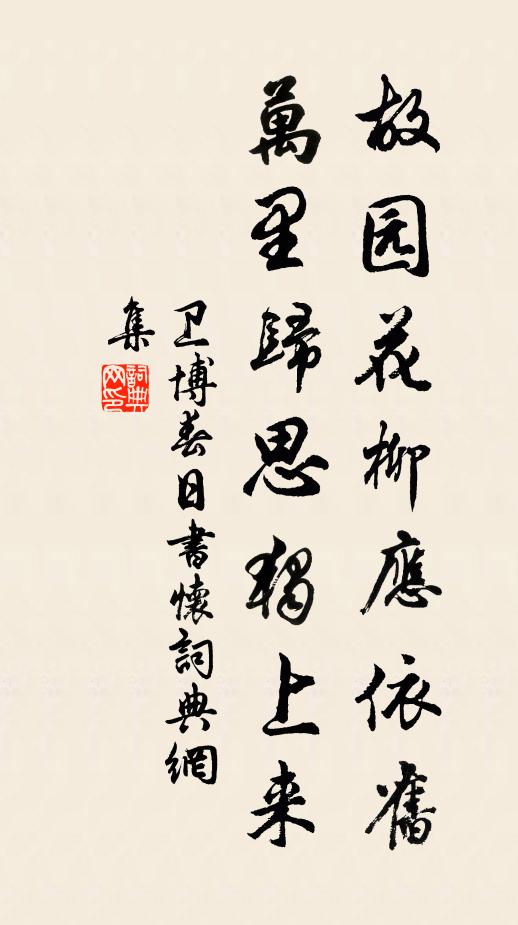 故园花柳應依舊
萬里歸思獨上来
卫博春日書懷詞典網
集
詞典网印